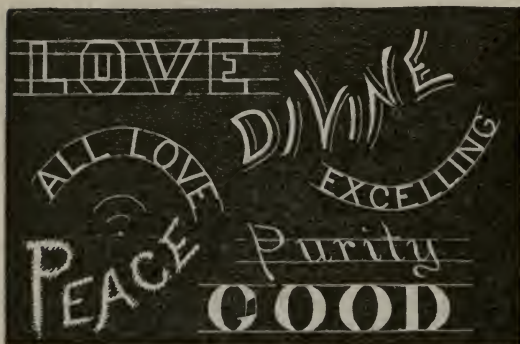 LOVE
DIVINE
ALL LOVE
EXCELLING
PEACE
Purity
GOOD